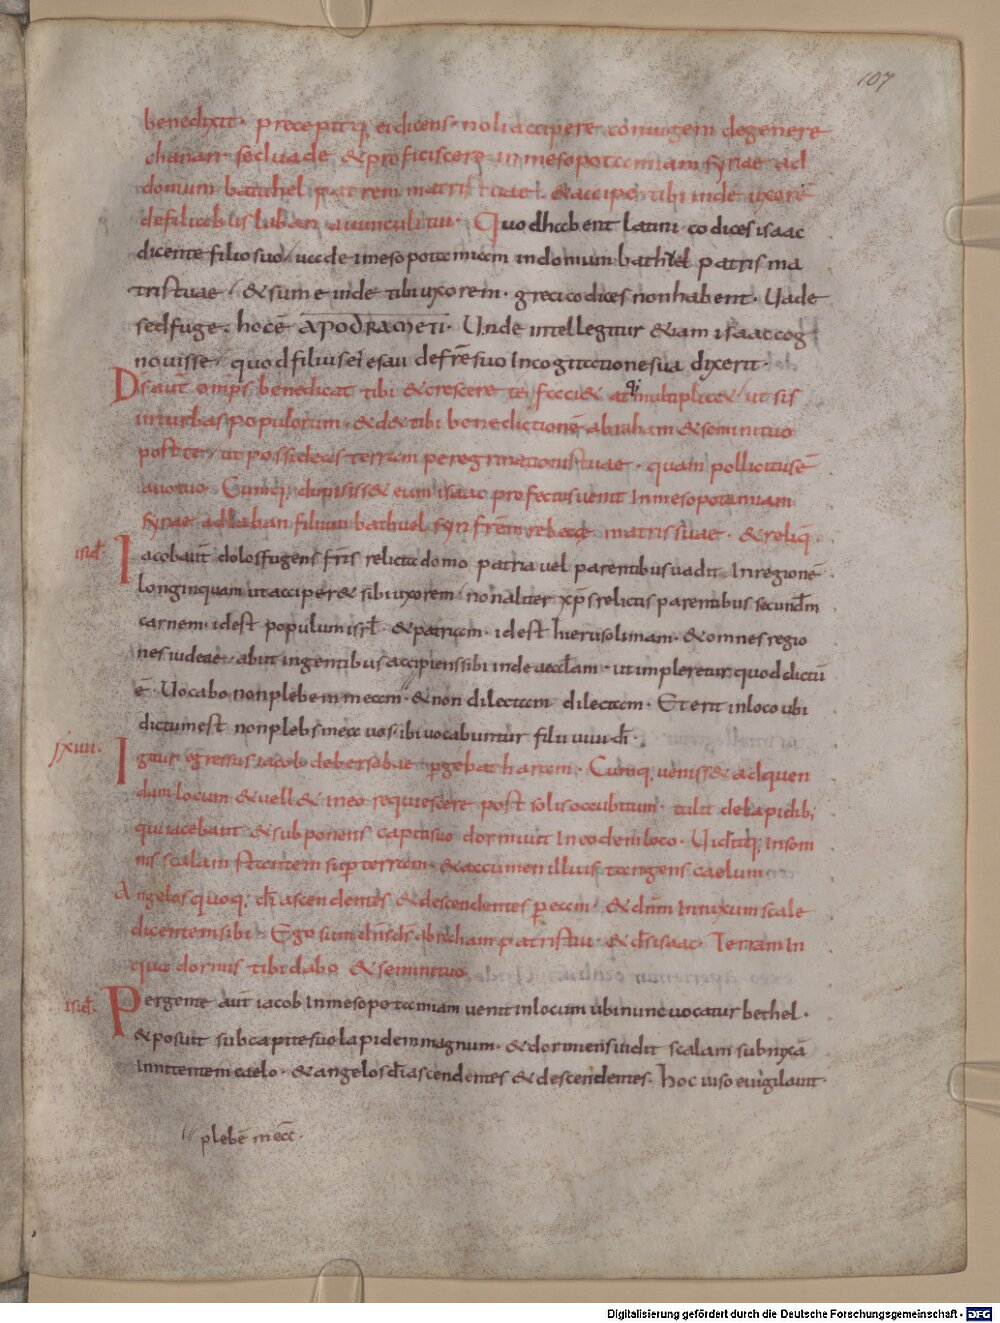 107
benedixit · precepitq; ei dicens · noli accipere coniugem de genere
chanan · sed uade & proficiscere in mesopotamiam syriae ad
domum bathuel patrem matris tuae & accipe tibi inde uxorē
de filiabus laban auunculi tui · Quod habent latini codices isaac
dicente filio suo / uade in mesopotamiam in domum bathuel patris ma
tris tuae / & sume inde tibi uxorem · greci codices non habent · Uade
sed fuge · hoc ē APODRAMETI · Unde intellegitur &iam isaac cog
nouisse / quod filius ei esau de frē suo In cogitatione sua dixerit ·
Dś aut̄ omp̄s benedicat tibi & crescere te faciat atq; multiplic& / ut sis
in turbas populorum · & d& tibi benedictionē abraham & semini tuo
post te / ut possideas terram peregrinationis tuae · quam pollicitus ē
auo tuo · Cumq; dimisiss& eum isaac profectus uenit In mesopotamiam
syriae ad laban filium bathuel syri frēm rebecce matris suae · & reliq̄ ·
isid̄ · Iacob aut̄ dolos fugens fr̄is relicta domo patria uel parentibus uadit In regionē
longinquam ut acciper& sibi uxorem / non aliter xp̄s relictis parentibus secund̄m
carnem · id est populum isrl̄ · & patriam · id est hierusolimam · & omnes regio
nes iudeae · abiit in gentibus accipiens sibi inde aeccl̄am · ut impleretur quod dictū
ē · Uocabo non plebem meam · // & non dilectam dilectam · Et erit in loco ubi
dictum est non plebs mea uos · ibi uocabuntur filii uiui dī ·
lxiiii · Igitur egressus iacob de bersabae pergebat harran · Cumq; uenisset ad quen
dam locum & uell& in eo requiescere post solis occubitum · tulit de lapidib;
qui iacebant & subponens capiti suo dormiuit In eodem loco · Uiditq; In som
nis scalam stantem sup̄ terram · & cacumen illius tangens caelum
Angelos quoq; dī ascendentes & descendentes p eam · & dn̄m Innixum scale
dicentem sibi · Ego sum dn̄s ds̄ abraham patris tui · & ds̄ isaac Terram In
qua dormis tibi dabo & semini tuo
isid̄ · Pergente aut̄ iacob In mesopotamiam uenit in locum ubi nunc uocatur bethel ·
& posuit sub capite suo lapidem magnum · & dormiens uidit scalam subnixā
Innitentem caelo · & angelos dī ascendentes & descendentes · hoc uiso euigilauit ·
// plebē meā ·
Digitalisierung gefördert durch die Deutsche Forschungsgemeinschaft - DFG